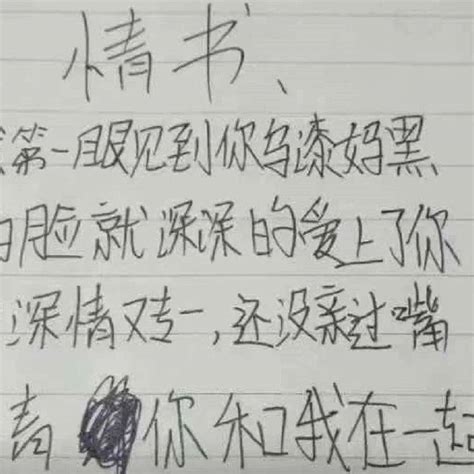 情书、
第一眼见到你乌漆妈黑
的脸就深深的爱上了你
深情又专一,还没亲过嘴
你和我在一起